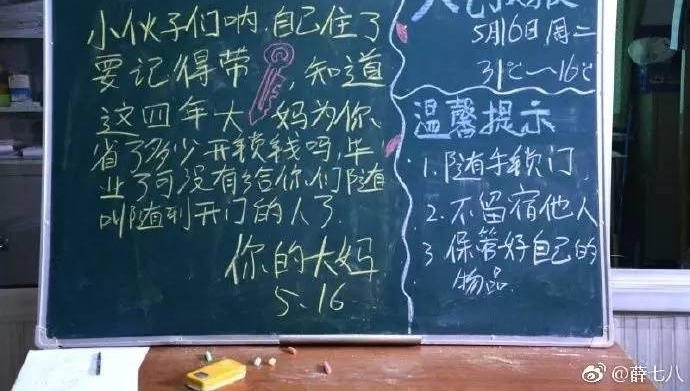 小伙子们呐,自己住了
要记得带 ,知道
这四年大 妈为你
省了多少开锁钱吗,毕
业了可没有给你们随
叫随到开门的人了.
你的大妈
5.16
5月16日周二
31℃~16℃
温馨提示
1.随手锁门
2.不留宿他人
3 保管好自己的
物品.
@薛七八